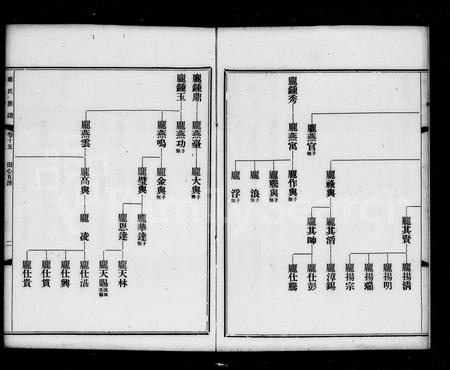 龐燕官無子
龐其賢
龐揚清
龐揚明
龐揚瑞
龐揚宗
龐祿與
龐其滔
龐漳錫
龐其帥
龐仕彭
龐仕騰
龐鍾秀
龐燕寓
龐作與無子
龐與無子
龐浪無子
龐浮無子
龐鍾鼎
龐燕臺
龐大與無子
龐鍾玉
龐燕功無子
龐燕鳴
龐金與無子
龐璧與
龐華達無子
龐恩達
龐天林
龐天賜
龐燕雲
龐高與
龐凌
龐仕湛
龐仕興
龐仕貫
龐仕貴
龐氏族譜
卷十五
田心五房